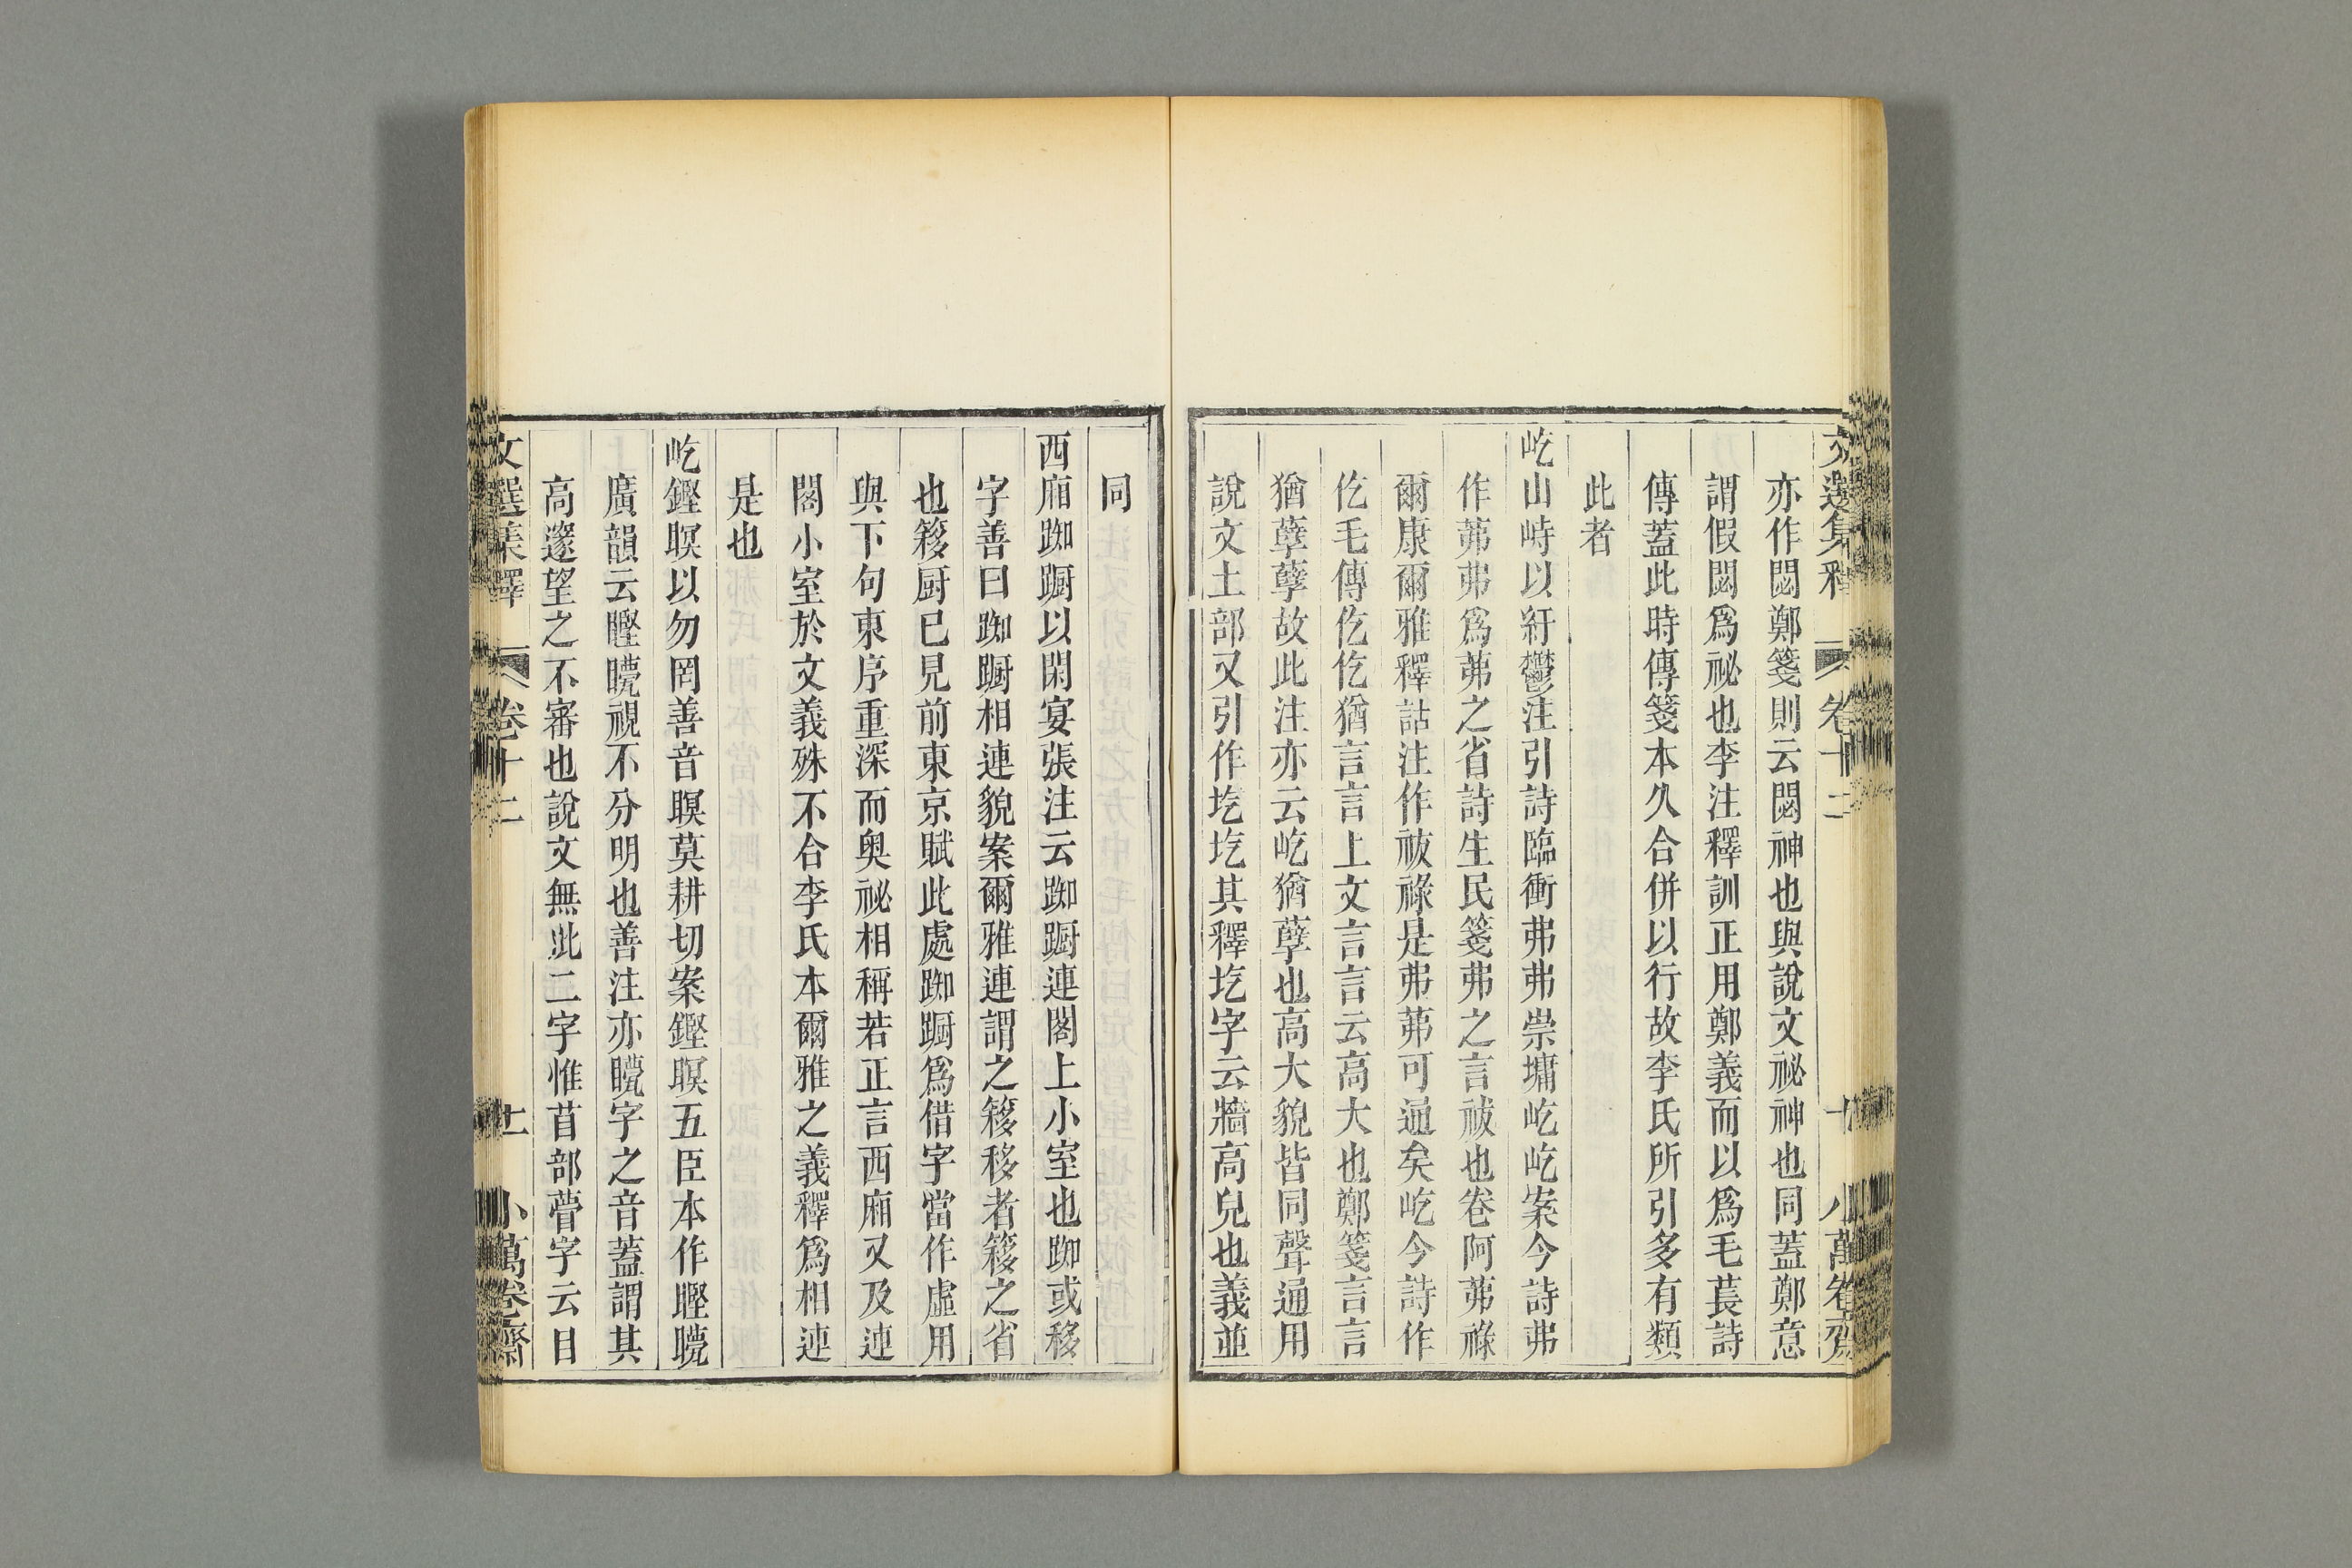 文選集釋 卷十二 十 小萬卷齋
亦作閟鄭箋則云閟神也與說文祕神也同蓋鄭意
謂假閟爲祕也李注釋訓正用鄭義而以爲毛萇詩
傳蓋此時傳箋本久合併以行故李氏所引多有類
此者
屹山峙以紆鬱注引詩臨衝茀茀崇墉屹屹案今詩弗
作茀弗爲茀之省詩生民箋弗之言祓也卷阿茀祿
爾康爾雅釋詁注作祓祿是弗茀可通矣屹今詩作
仡毛傳仡仡猶言言上文言言云高大也鄭箋言言
猶孽孽故此注亦云屹猶孽也高大貌皆同聲通用
說文土部又引作圪圪其釋圪字云牆高皃也義並
同
西廂踟蹰以閑宴張注云踟蹰連閣上小室也踟或移
字善曰踟蹰相連貌案爾雅連謂之簃移者簃之省
也簃厨已見前東京賦此處踟蹰爲借字當作虛用
與下句東序重深而奥祕相稱若正言西廂又及連
閣小室於文義殊不合李氏本爾雅之義釋爲相連
是也
屹鏗瞑以勿罔善音瞑莫耕切案鏗瞑五臣本作瞘矎
廣韻云瞘矎視不分明也善注亦矎字之音蓋謂其
高邃望之不審也說文無此二字惟苜部瞢字云目
文選集釋 卷十二 十一 小萬卷齋